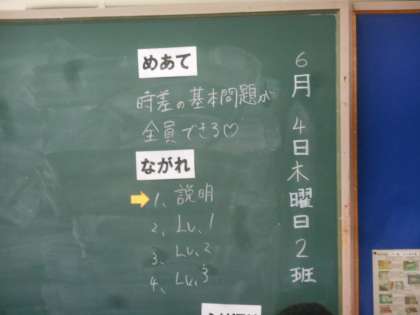 6月4日木曜日2班
めあて
時差の基本問題が
全員できる♡
ながれ
1、説明
2、Lv.1
3、Lv.2
4、Lv.3